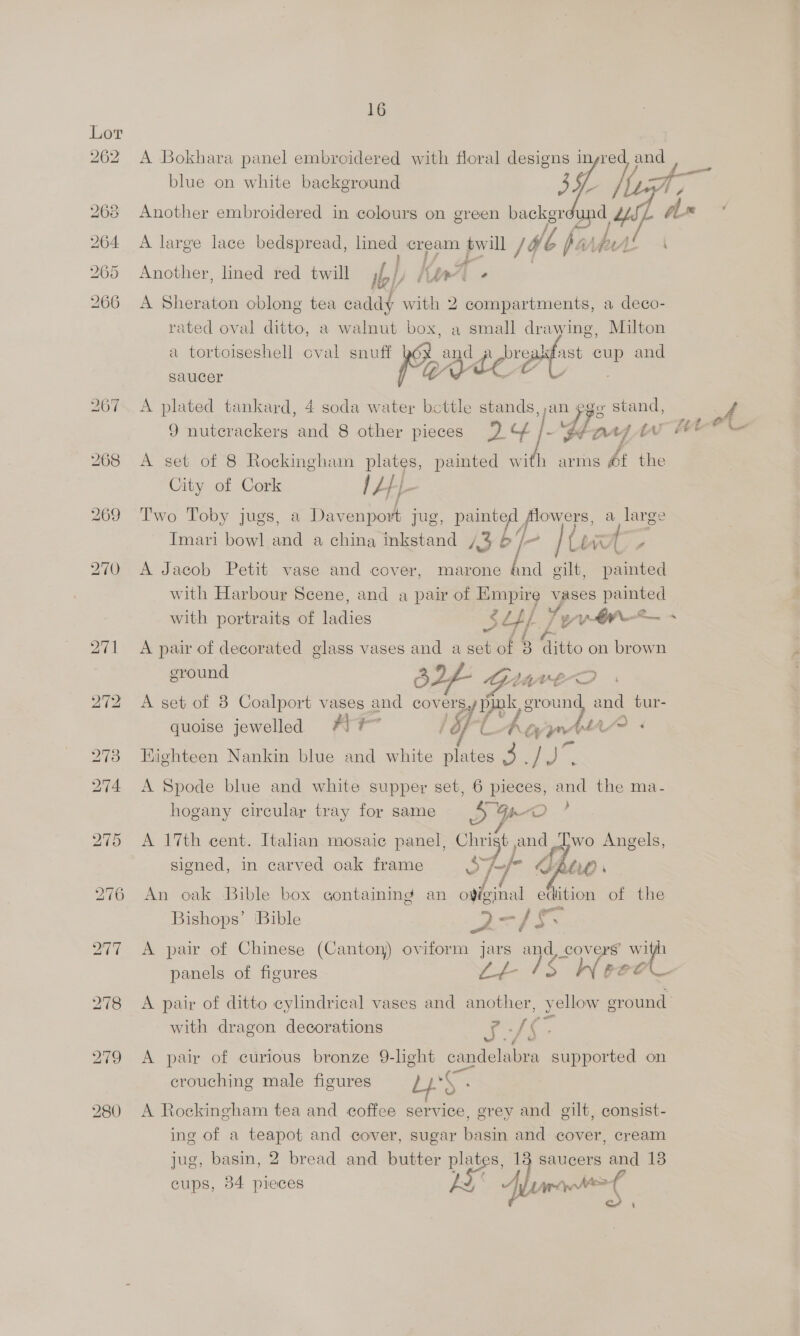 16
Lot
262 A Bokhara panel embroidered with floral designs in red and
blue on white background
263 Another embroidered in colours on green background
264 A large lace bedspread, lined cream twill
265 Another, lined red twill
266 A Sheraton oblong tea caddy with 2 compartments, a deco-
rated oval ditto, a walnut box, a small drawing, Milton
a tortoiseshell oval snuff box and a breakfast cup and
saucer
267 A plated tankard, 4 soda water bottle stands, an egg stand,
9 nutcrackers and 8 other pieces
268 A set of 8 Rockingham plates, painted with arms of the
City of Cork
269 Two Toby jugs, a Davenport jug, painted flowers, a large
Imari bowl and a china inkstand
270 A Jacob Petit vase and cover, marone and gilt, painted
with Harbour Scene, and a pair of Empire vases painted
with portraits of ladies
271 A pair of decorated glass vases and a set of 3 ditto on brown
ground
272 A set of 3 Coalport vases and covers, pink ground, and tur-
quoise jewelled
273 Eighteen Nankin blue and white plates
274 A Spode blue and white supper set, 6 pieces, and the ma-
hogany circular tray for same
275 A 17th cent. Italian mosaic panel, Christ and Two Angels,
signed, in carved oak frame
276 An oak Bible box containing an original edition of the
Bishops' Bible
277 A pair of Chinese (Canton) oviform jars and covers with
panels of figures
278 A pair of ditto cylindrical vases and another, yellow ground
with dragon decorations
279 A pair of curious bronze 9-light candelabra supported on
crouching male figures
280 A Rockingham tea and coffee service, grey and gilt, consist-
ing of a teapot and cover, sugar basin and cover, cream
jug, basin, 2 bread and butter plates, 13 saucers and 13
cups, 34 pieces